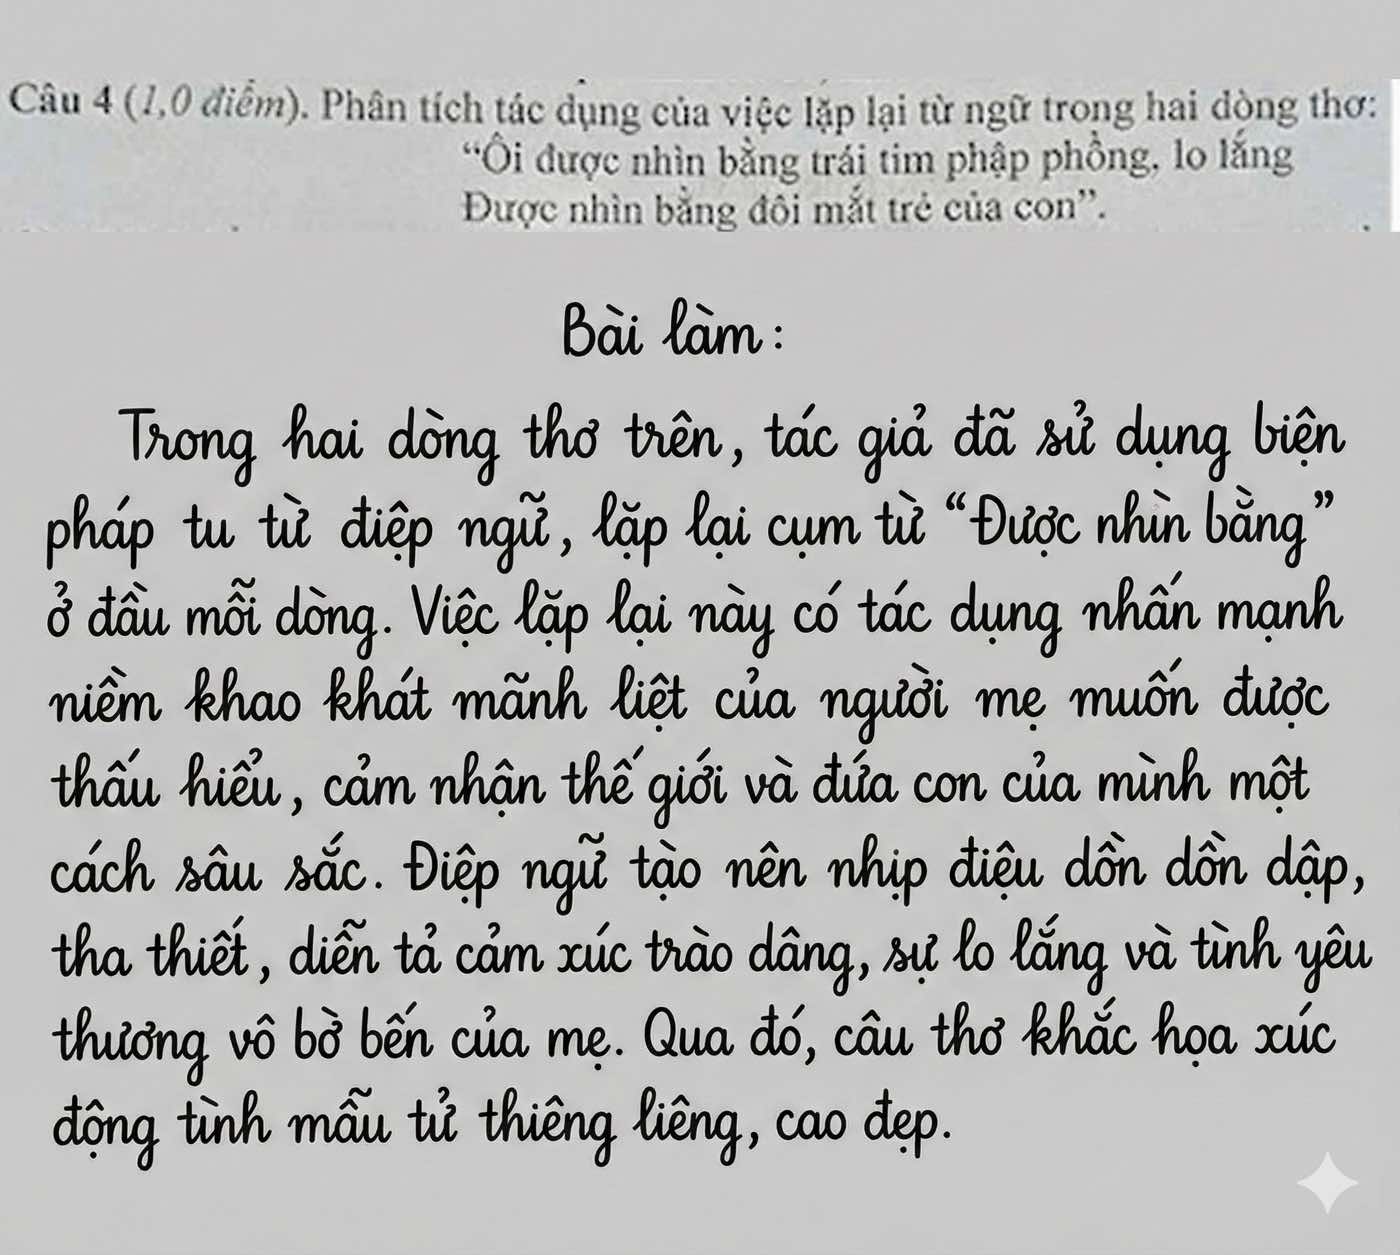 Câu 4 (1,0 điểm). Phân tích tác dụng của việc lặp lại từ ngữ trong hai dòng thơ:
“Ôi được nhìn bằng trái tim phập phồng, lo lắng
Được nhìn bằng đôi mắt trẻ của con”.
Bài làm:
Trong hai dòng thơ trên, tác giả đã sử dụng biện
pháp tu từ điệp ngữ, lặp lại cụm từ “Được nhìn bằng”
ở đầu mỗi dòng. Việc lặp lại này có tác dụng nhấn mạnh
niềm khao khát mãnh liệt của người mẹ muốn được
thấu hiểu, cảm nhận thế giới và đứa con của mình một
cách sâu sắc. Điệp ngữ tạo nên nhịp điệu dồn dồn dập,
tha thiết, diễn tả cảm xúc trào dâng, sự lo lắng và tình yêu
thương vô bờ bến của mẹ. Qua đó, câu thơ khắc họa xúc
động tình mẫu tử thiêng liêng, cao đẹp.